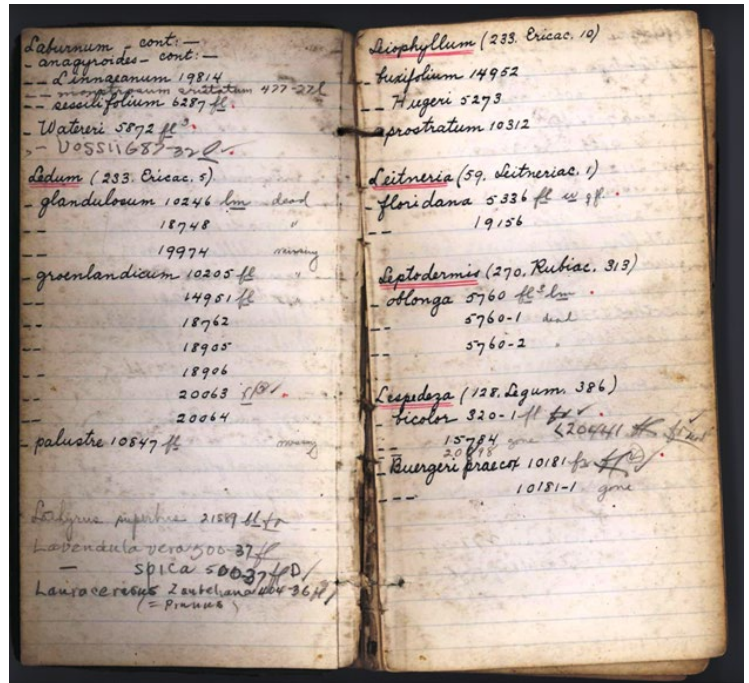 Laburnum - cont: -
- anagyroides - cont: -
-- Linnaeanum 19814
-- monstrosum 477-27
-- sessilifolium 6287 fl.
- Watereri 5872 fl
- Vossii 687-32
Ledum (233. Ericac. 5)
- glandulosum 10246 lm dead
-- 18748 "
-- 19974 missing
- groenlandicum 10205 fl "
-- 14951 fl
-- 18762
-- 18905
-- 18906
-- 20063
-- 20064
- palustre 10847 fl missing
Lathyrus 21589 fl fr
Lavendula vera 500-37 fl
— spica 500-37 fl D
Laurocerasus Zabeliana 404-36
(= Prunus)
Leiophyllum (233. Ericac. 10)
- buxifolium 14952
-- Hugeri 5273
- prostratum 10312
Leitneria (59. Leitneriac. 1)
- floridana 5336 fl
-- 19156
Leptodermis (270. Rubiac. 313)
- oblonga 5760 fl lm
-- 5760-1 dead
-- 5760-2
Lespedeza (128. Legum. 386)
- bicolor 320-1 fl fr
-- 15784 gone 20441
20898
- Buergeri praecox 10181 fr
--- 10181-1 gone